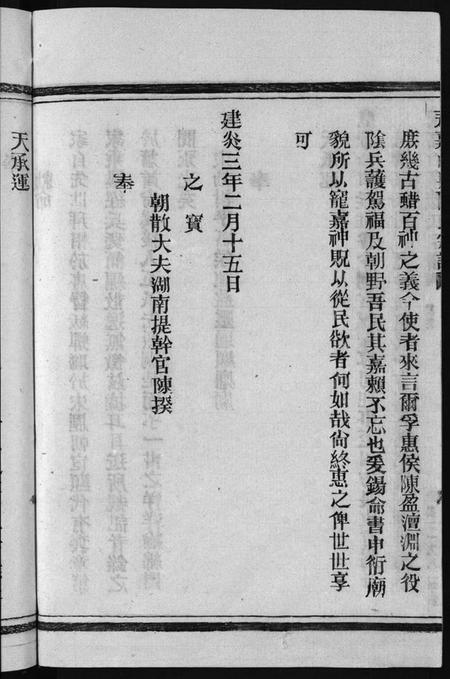 庶幾古蜡百神之義今使者來言爾孚惠侯陳盈澶淵之役
陰兵護駕福及朝野吾民其嘉賴不忘也爰錫命書申衍廟
貌所以寵嘉神旣以從民欲者何如哉尙終惠之俾世世享
可
建炎三年二月十五日
之寶
朝散大夫湖南提幹官陳撰
奉
天承運